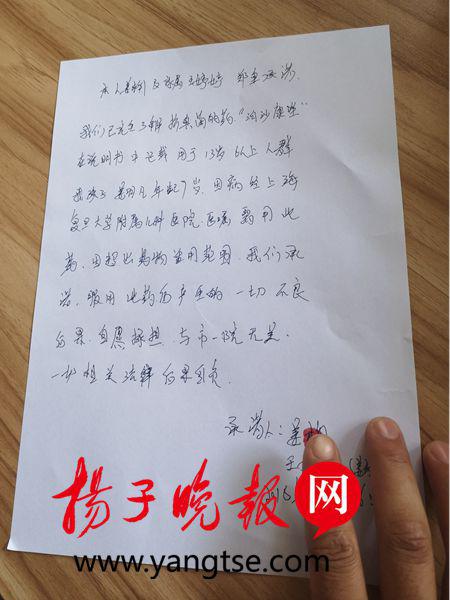 本人姜 及家属王婷婷 郑重承诺.
我们已完全了解 抗真菌的药"泊沙康唑"
在说明书中记载 用于13岁以上人群
我孩子 姜 年纪7岁. 因病经上海
复旦大学附属儿科医院. 医嘱 需用此
药. 因超出药物适用范围. 我们承
诺. 服用此药后产生的一切不良
后果. 自愿承担. 与市一院无关.
一切相关法律后果自负.
承诺人: 姜
王
扬子晚报网
www.yangtse.com